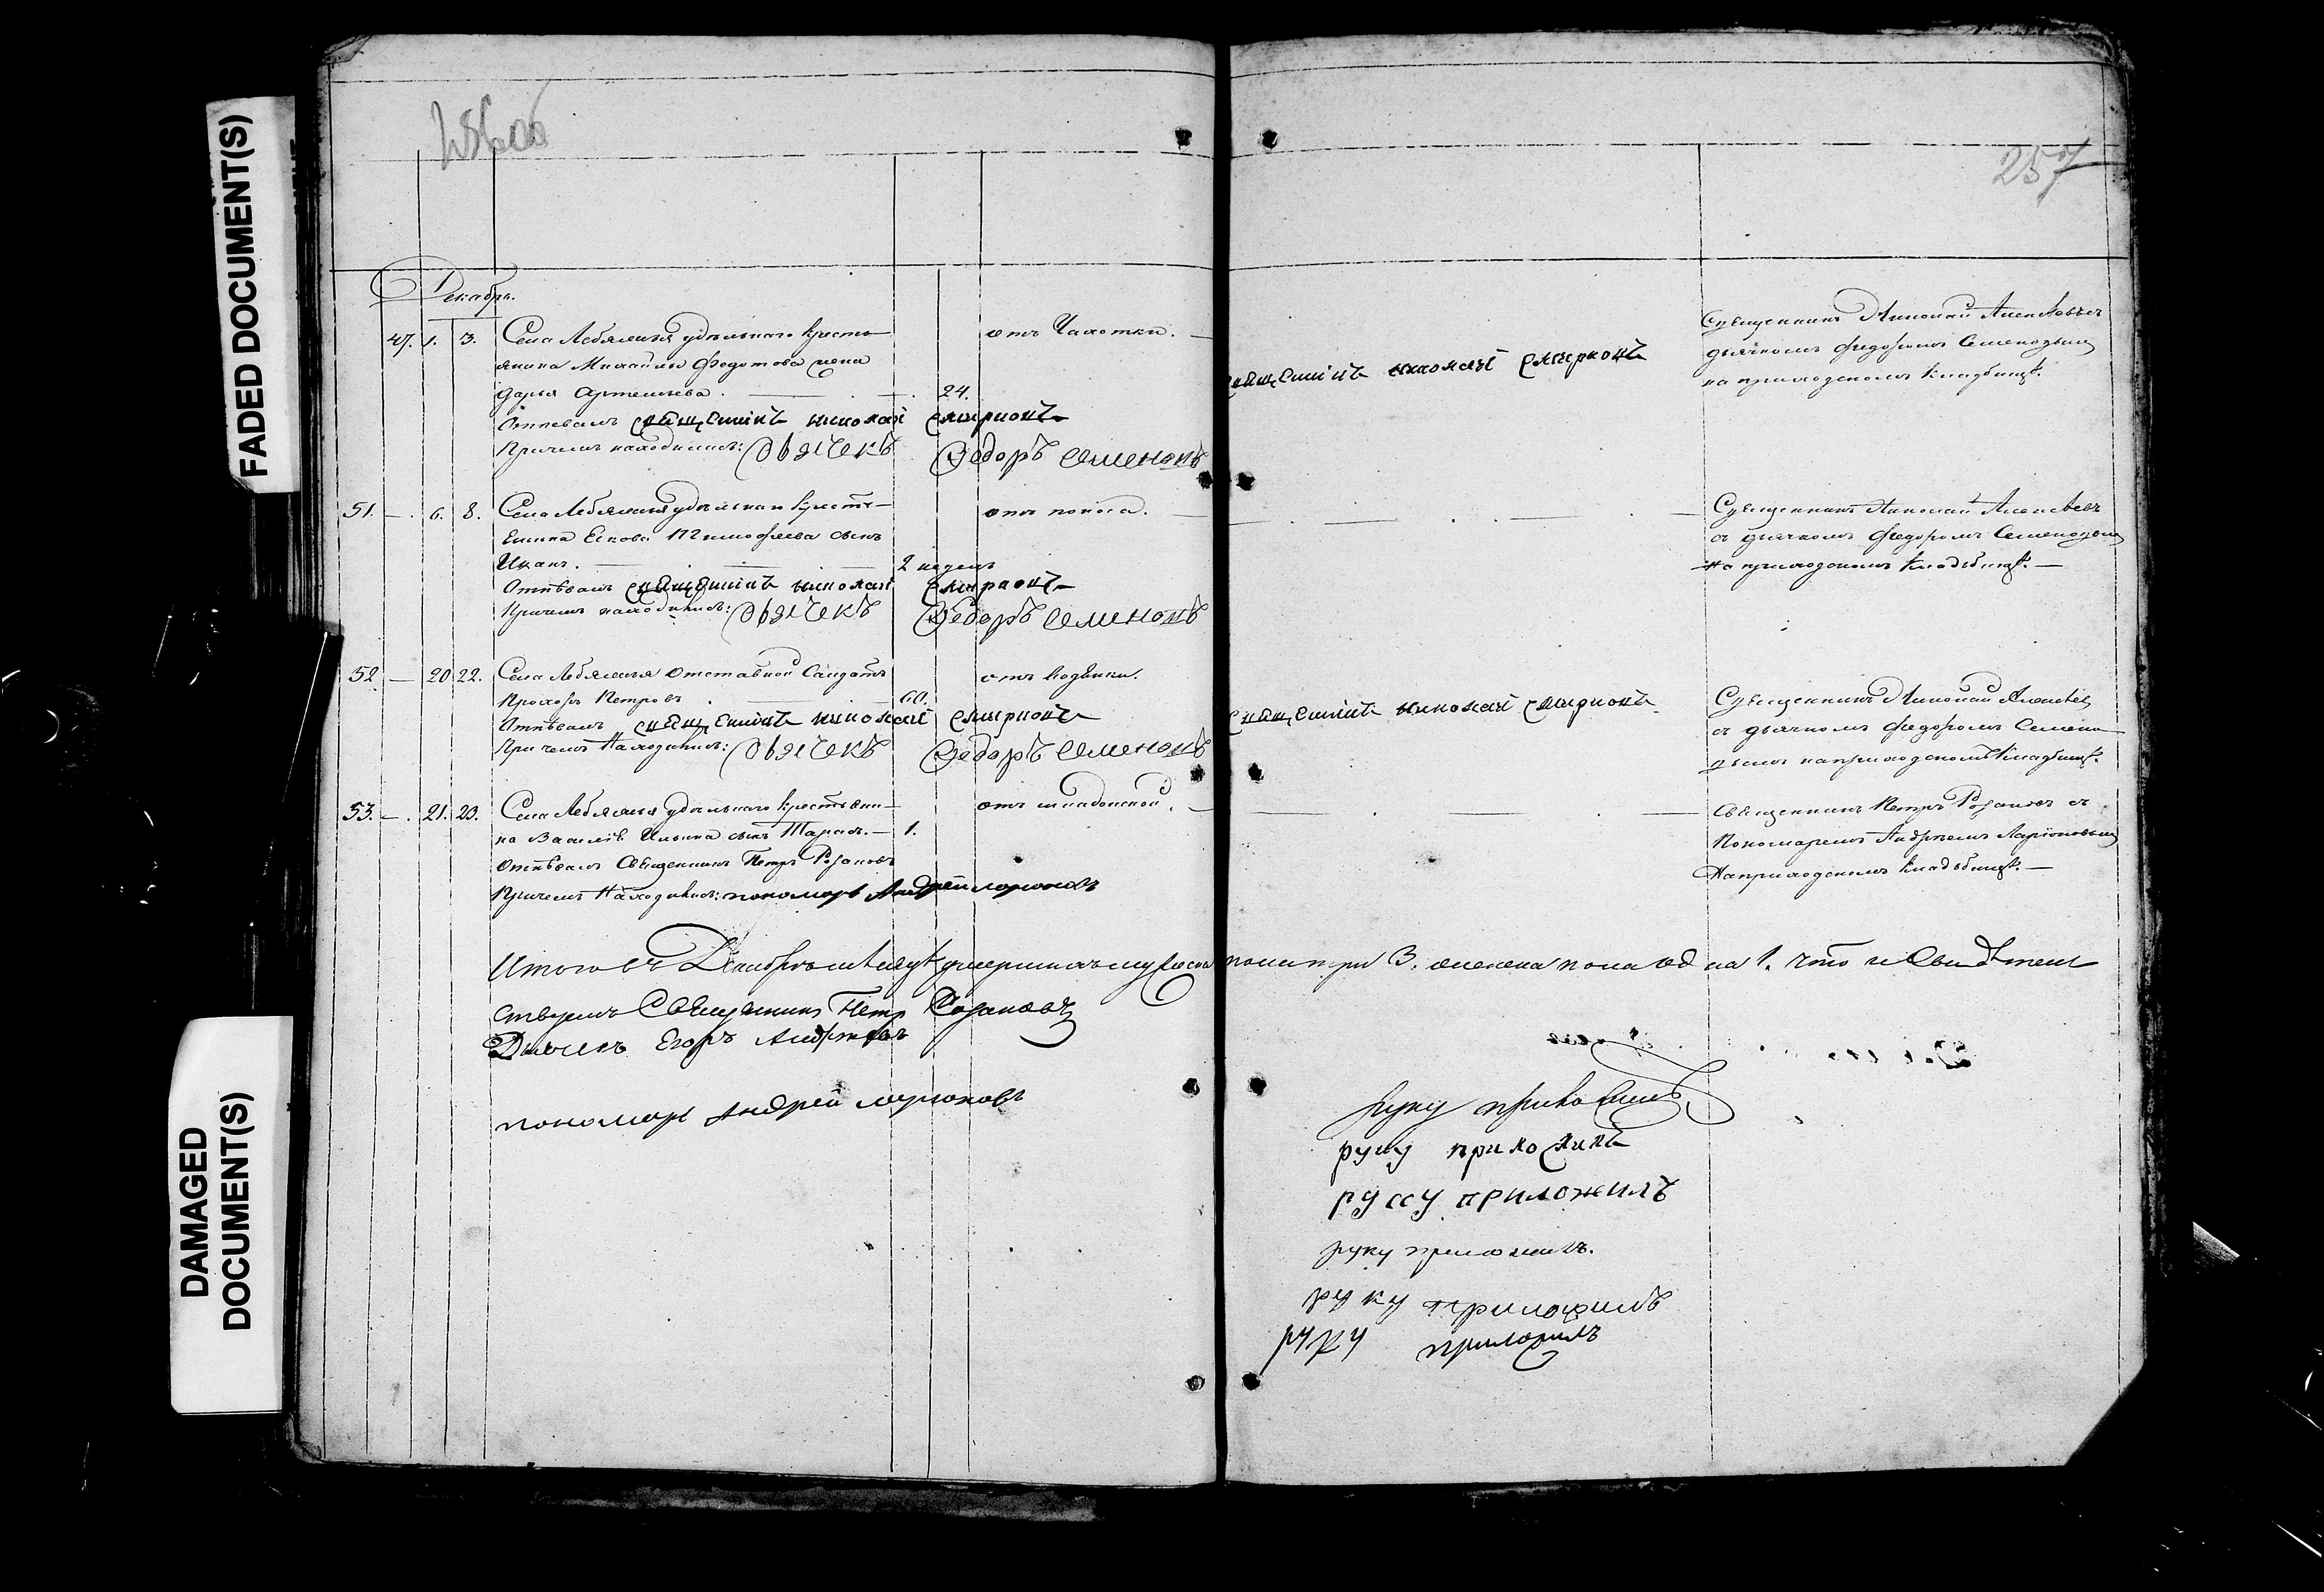 FADED DOCUMENT(S)
DAMAGED
DOCUMENT(S)
257
Декабрь.
47. 1. 3. Села Лебяжья удѣльнаго кресть-
янина Михайлы Федотова жена
Дарья Артемьева. 24.
отъ Чахотки.
Отпевалъ священникъ николай смирновъ
Причемъ находились: дьячекъ Федоръ семеновъ
священникъ николай смирновъ
Священникъ Николай Алексѣевъ съ
дьячкомъ Федоромъ Семеновымъ
на приходскомъ кладбищѣ.
51. — 6. 8. Села Лебяжья удѣльнаго кресть-
янина Тимофеева сынъ
Иванъ. 2 недель
отъ поноса.
Отпѣвалъ священникъ николай смирновъ
Причемъ находились: дьячекъ Федоръ семеновъ
Священникъ Николай Алексѣевъ
съ дьячкомъ Федоромъ Семеновымъ
на приходскомъ кладбищѣ. —
52. — 20 22. Села Лебяжья отставной Солдатъ
Прохоръ Петровъ 60.
отъ водянки.
Отпѣвалъ священникъ николай смирновъ
Причемъ Находились: дьячекъ Федоръ семеновъ
священникъ николай смирновъ
Священникъ Николай Алексѣевъ
съ дьячкомъ Федоромъ Семено-
вымъ на приходскомъ кладбищѣ.
53. — 21. 23. Села Лебяжья удѣльнаго крестьяни-
на Василія Ильина сынъ Тарасъ. — 1.
отъ младенской.
Отпѣвалъ Священникъ Петръ Розановъ
Причемъ Находились: пономарь Андрей ларионовъ
Священникъ Петръ Розановъ съ
Пономаремъ Андреемъ Ларіоновымъ
На приходскомъ кладбищѣ. —
Итого въ Декабрѣ мѣсяцѣ умершихъ мужеска пола три 3. женска пола одна 1. что и свидѣтель-
ствуемъ Священникъ Петръ Розановъ
Дьячекъ Егоръ Андреевъ
пономарь Андрей ларионовъ
руку приложилъ
руку приложилъ
руку приложилъ
руку приложилъ.
руку приложилъ
руку приложилъ